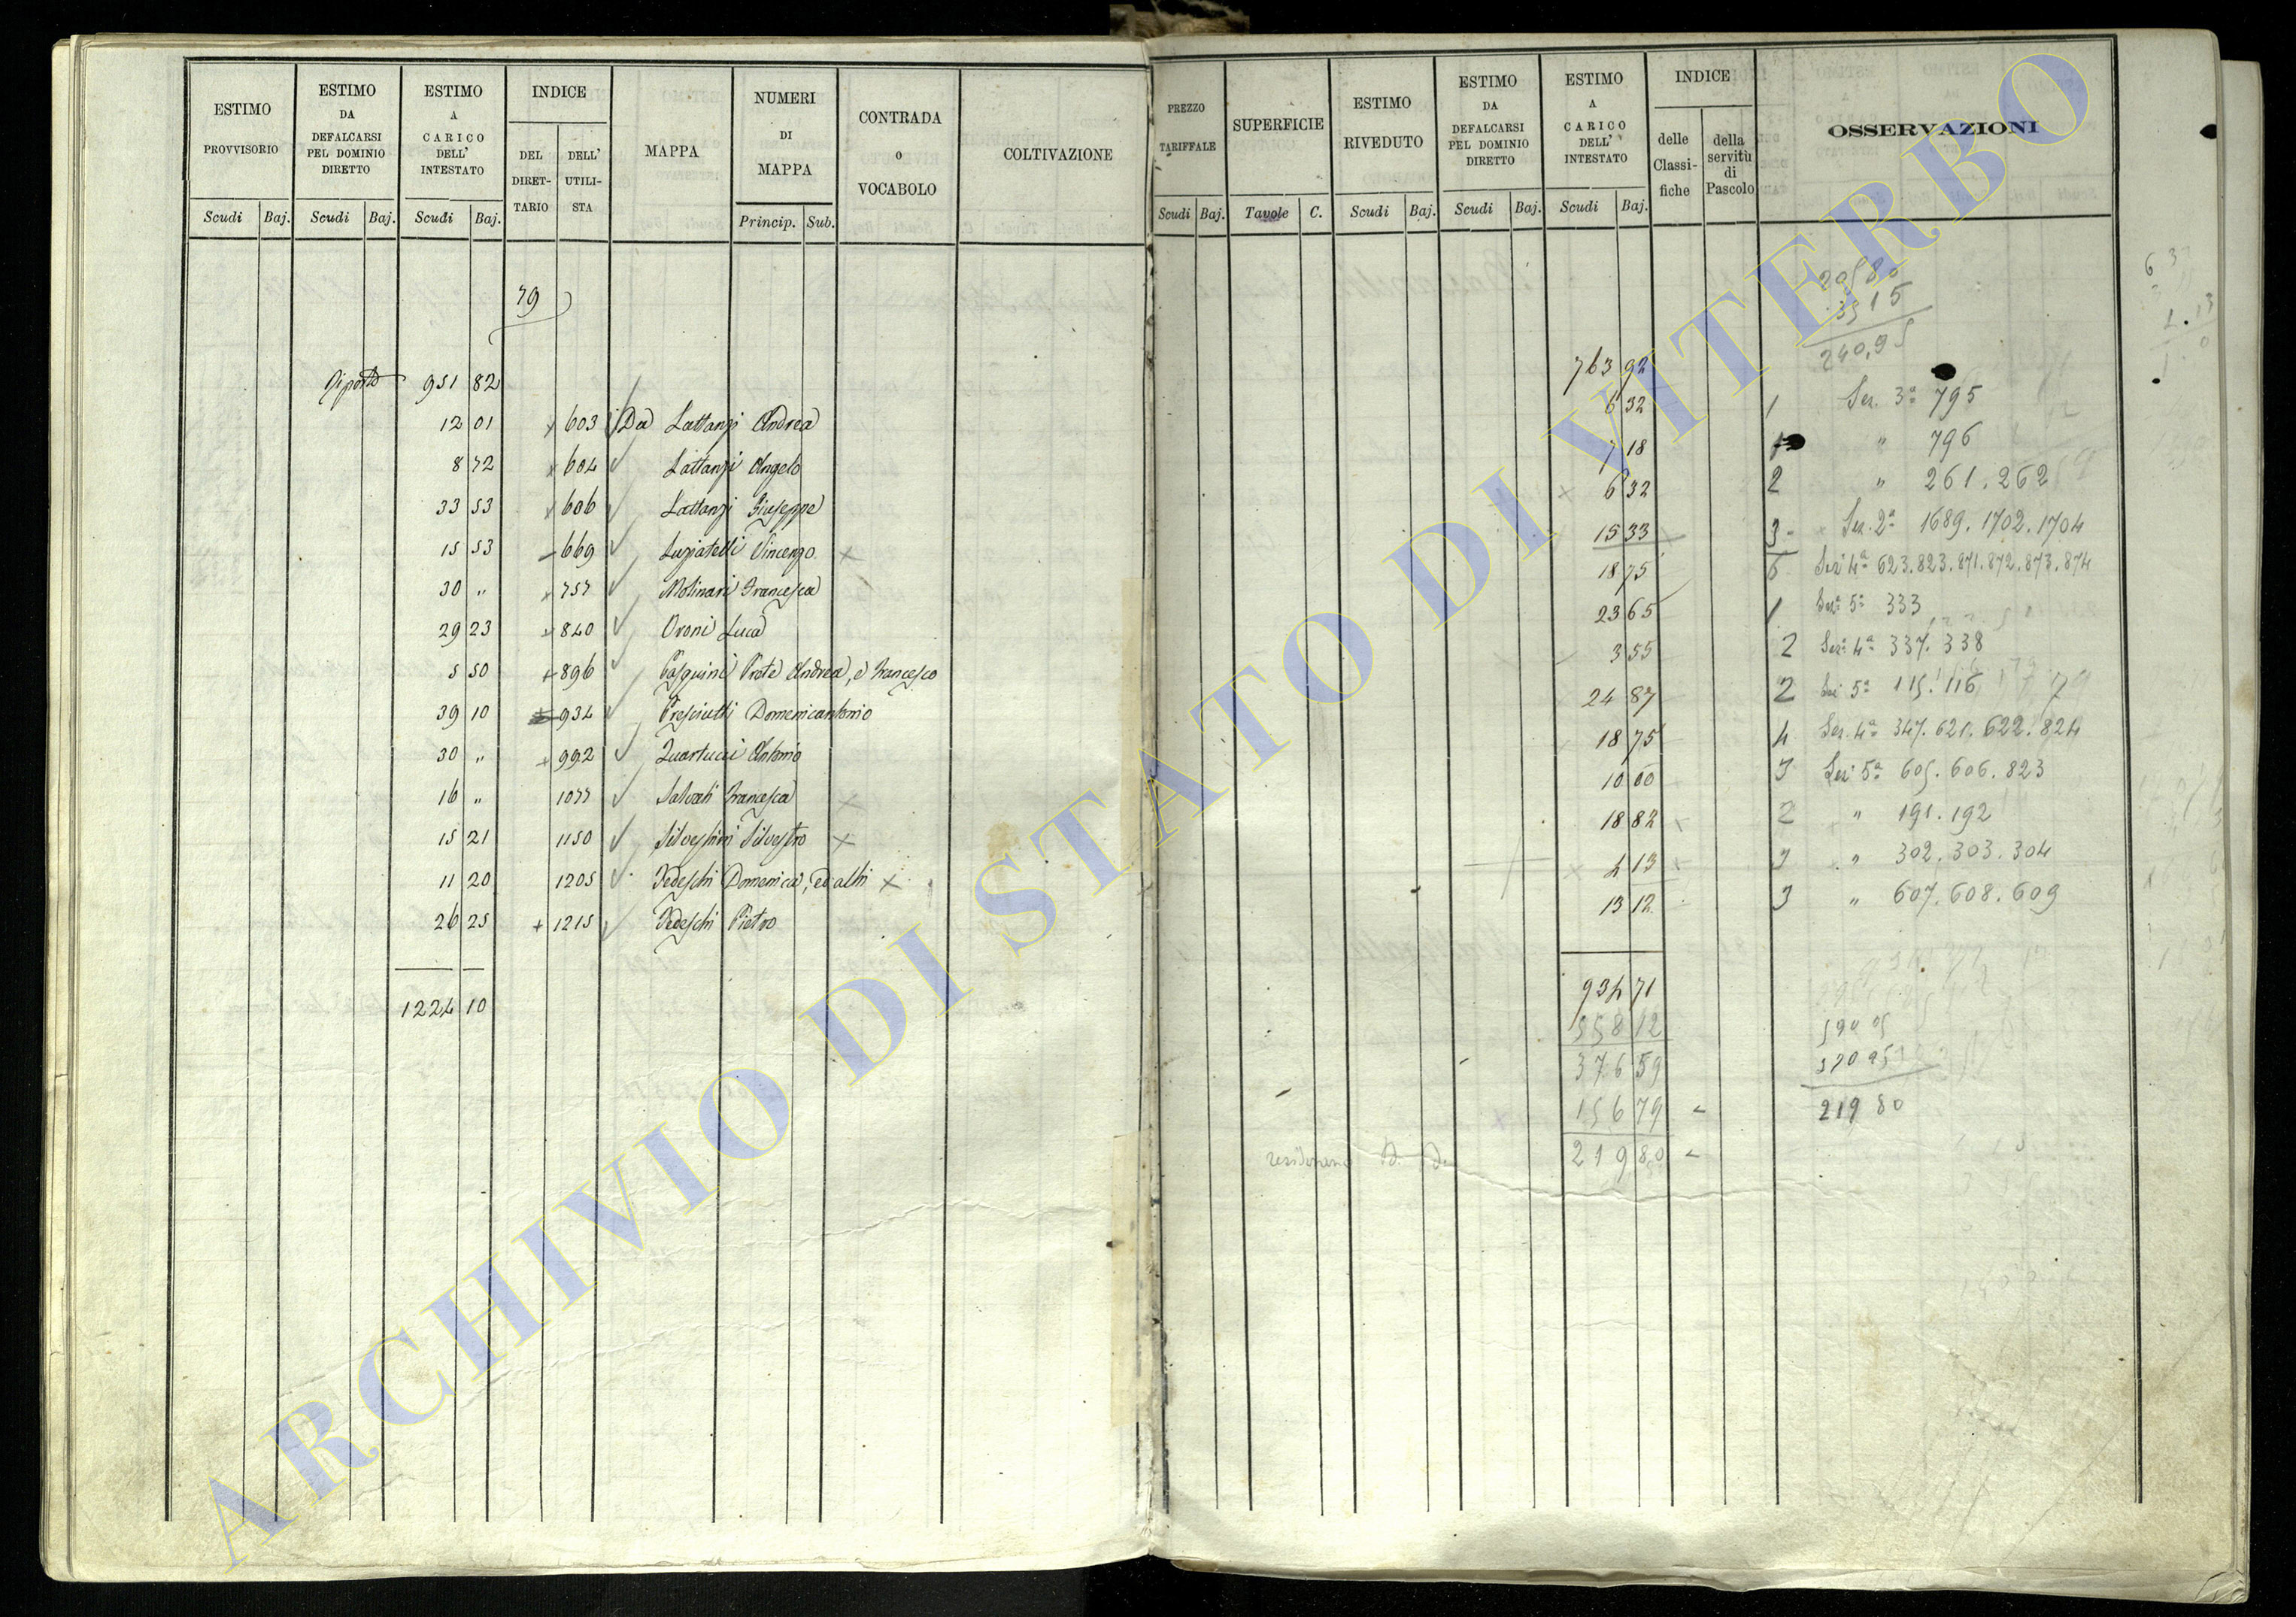 ESTIMO PROVVISORIO
ESTIMO DA DEFALCARSI PEL DOMINIO DIRETTO
ESTIMO A CARICO DELL' INTESTATO
INDICE
DEL DIRETTARIO
DELL' UTILISTA
MAPPA
NUMERI DI MAPPA
CONTRADA O VOCABOLO
COLTIVAZIONE
Scudi Baj. Scudi Baj. Scudi Baj. Princip. Sub.
PREZZO TARIFFALE
SUPERFICIE
ESTIMO RIVEDUTO
ESTIMO DA DEFALCARSI PEL DOMINIO DIRETTO
ESTIMO A CARICO DELL' INTESTATO
INDICE
delle Classifiche
della servitù di Pascolo
OSSERVAZIONI
Scudi Baj. Tavole C. Scudi Baj. Scudi Baj. Scudi Baj.
79
20580
3515
240,95
Riporto 951 82 763 92
12 01 603 Da Lattanzi Andrea 6 32 1 Sez. 3ª 795
8 72 604 Lattanzi Angelo 7 18 1 " 796
33 53 606 Lattanzi Giuseppe 6 32 2 " 261. 262
15 53 669 Lupiatelli Vincenzo 15 33 3 Sez. 2ª 1689. 1702. 1704
30 " 757 Molinari Francesca 18 75 6 Sez 4ª 623. 823. 871. 872. 873. 874
29 23 840 Oroni Luca 23 65 1 Sez 5ª 333
5 50 896 Pasquini Prete Andrea, e Francesco 3 55 2 Sez 4ª 337. 338
39 10 934 Presciutti Domenicantonio 24 87 2 Sez 5ª 115. 116
30 " 992 Quartucci Antonio 18 75 4 Sez. 4ª 347. 621. 622. 824
16 " 1077 Salvati Francesca 10 00 3 Sez 5ª 605. 606. 823
15 21 1150 Silvestrini Silvestro 18 82 2 " 191. 192
11 20 1205 Tedeschi Domenica, ed altri 4 13 3 " 302. 303. 304
26 25 1215 Tedeschi Pietro 13 12 3 " 607. 608. 609
1224 10 934 71
558 12
376 59
156 79
219 80
219 80
ARCHIVIO DI STATO DI VITERBO